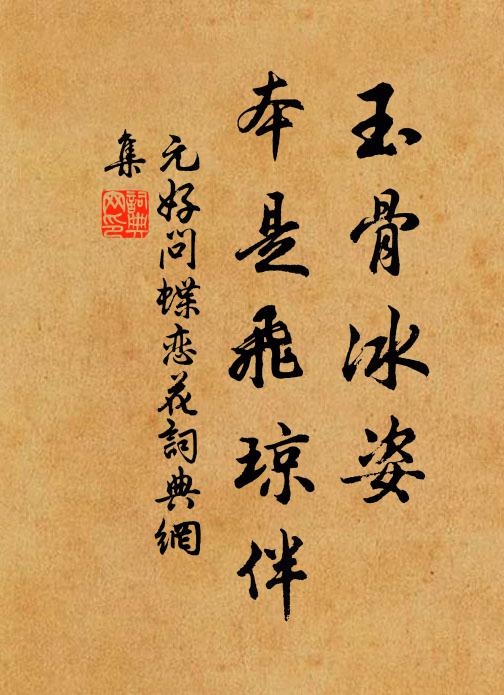 玉骨冰姿
本是飛琼伴
元好问蝶恋花詞典網
集
詞典网印